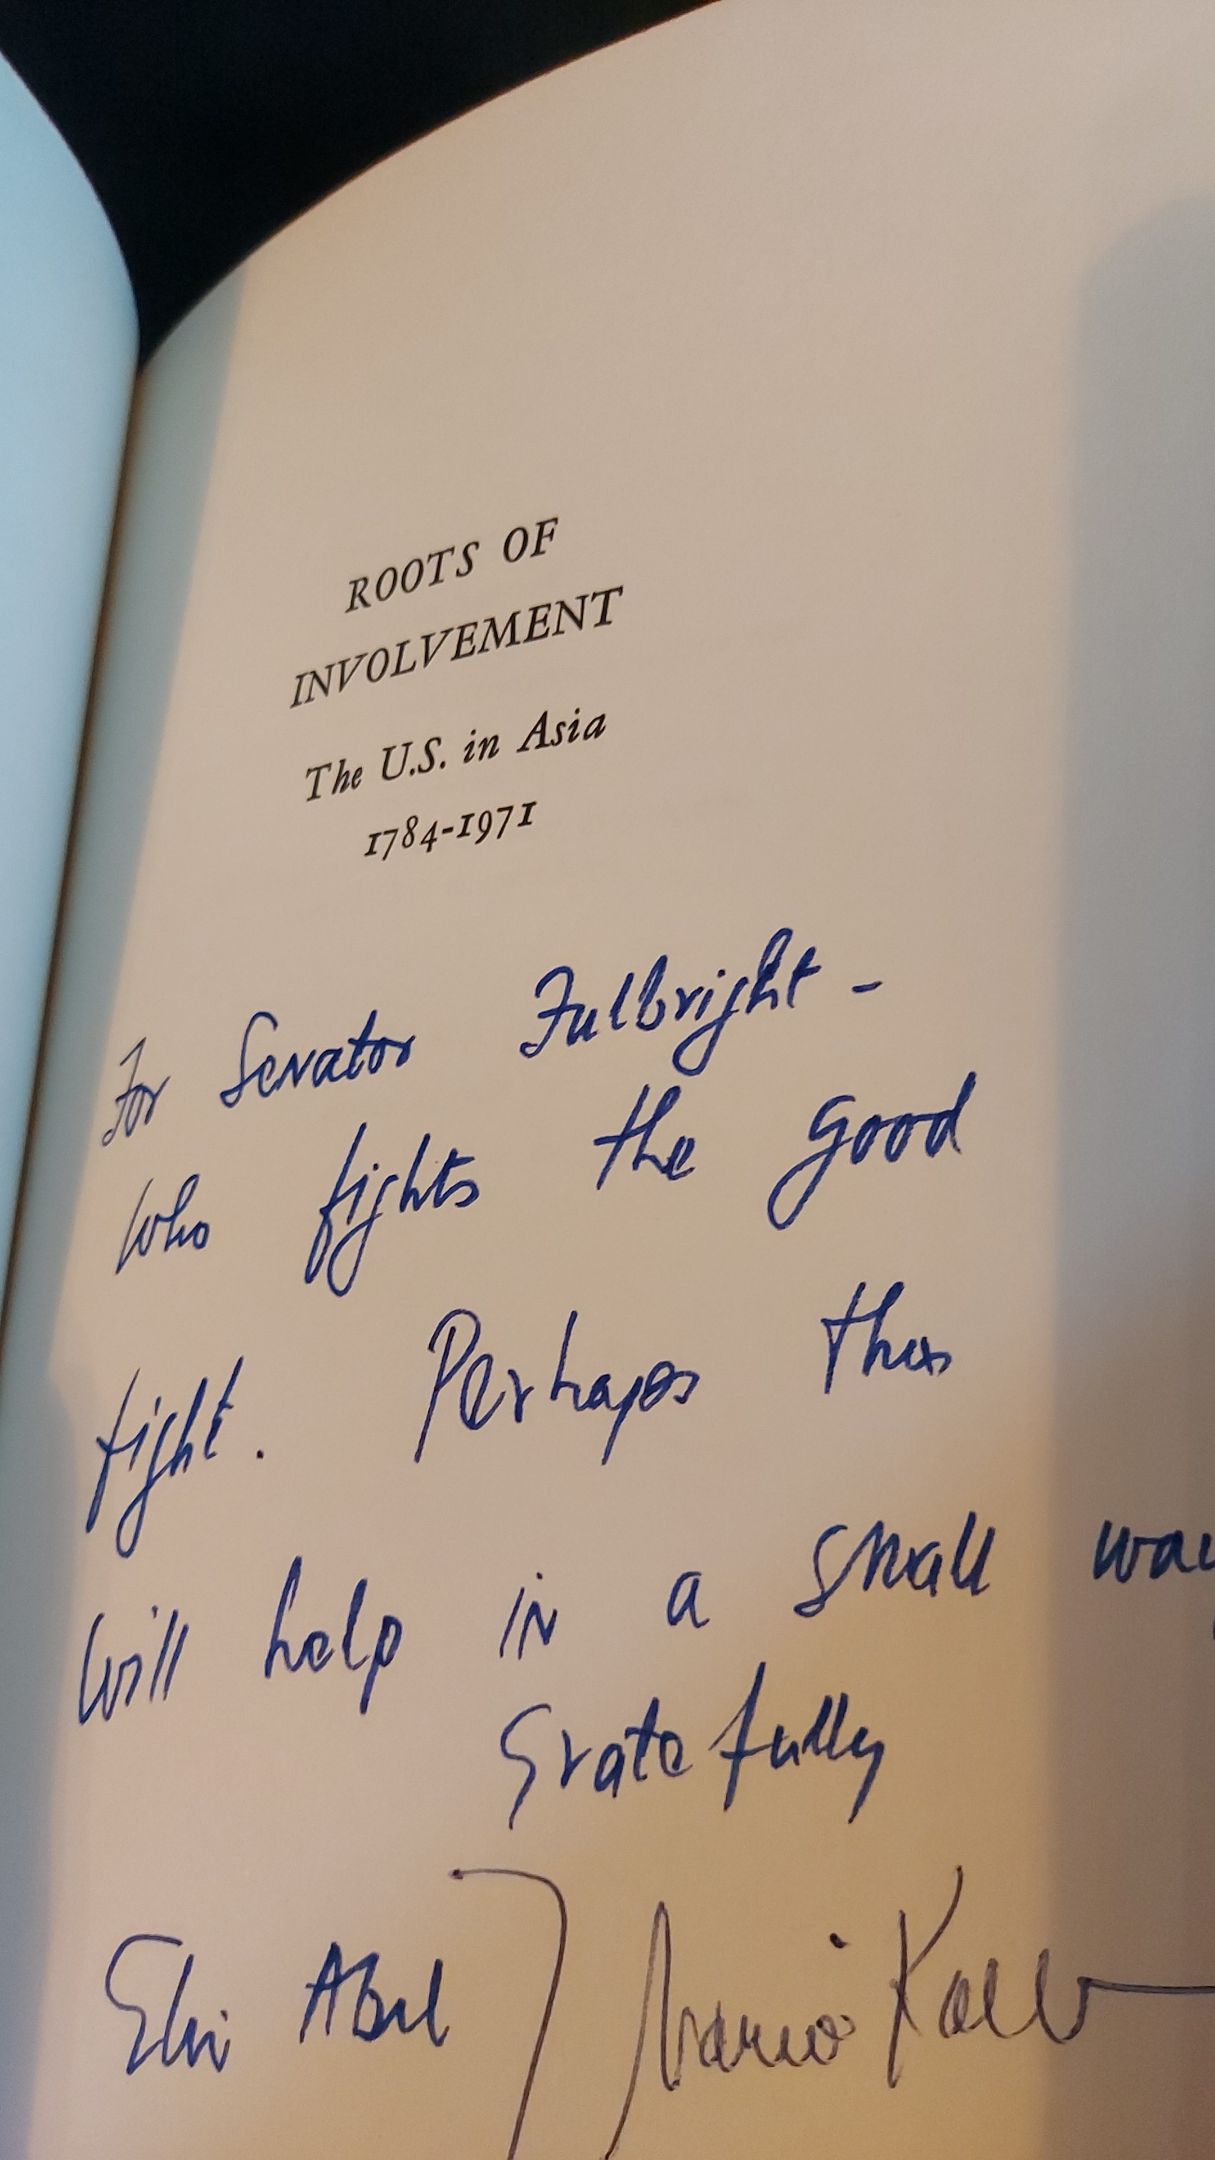 ROOTS OF
INVOLVEMENT
The U.S. in Asia
1784-1971
For Senator Fulbright -
Who fights the good
fight. Perhaps this
will help in a small way
Gratefully
Elie Abel Marvin Kalb